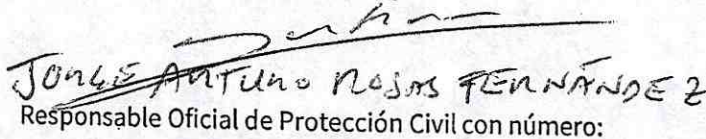 JORGE ARTURO ROJAS FERNÁNDEZ
Responsable Oficial de Protección Civil con número: